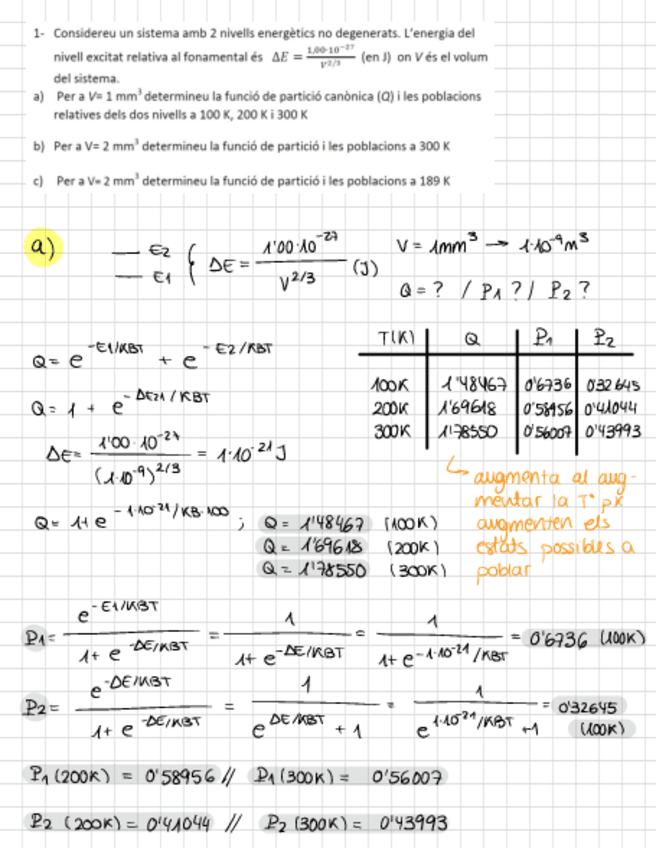 1- Considereu un sistema amb 2 nivells energètics no degenerats. L'energia del
nivell excitat relativa al fonamental és ΔE = 1,00·10⁻²⁷ / V^2/3 (en J) on V és el volum
del sistema.
a) Per a V= 1 mm³ determineu la funció de partició canònica (Q) i les poblacions
relatives dels dos nivells a 100 K, 200 K i 300 K
b) Per a V= 2 mm³ determineu la funció de partició i les poblacions a 300 K
c) Per a V= 2 mm³ determineu la funció de partició i les poblacions a 189 K
a) — E2
— E1
{ ΔE = 1'00·10⁻²⁷ / V^2/3 (J)
V = 1mm³ → 1·10⁻⁹m³
Q = ? / P1 ? / P2 ?
Q = e^-E1/KBT + e^-E2/KBT
Q = 1 + e^-ΔE21/KBT
ΔE = 1'00·10⁻²⁷ / (1·10⁻⁹)^2/3 = 1·10⁻²¹J
T(K) Q P1 P2
100K 1'48467 0'6736 0'32645
200K 1'69618 0'58956 0'41044
300K 1'78550 0'56007 0'43993
↳ augmenta al aug-
mentar la Tª pk
augmenten els
estats possibles a
poblar
Q = 1+e^-1·10⁻²¹/KB·100 ; Q = 1'48467 (100K)
Q = 1'69618 (200K)
Q = 1'78550 (300K)
P1 = e^-E1/KBT / 1+ e^-ΔE/KBT = 1 / 1+ e^-ΔE/KBT = 1 / 1+ e^-1·10⁻²¹/KBT = 0'6736 (100K)
P2 = e^-ΔE/KBT / 1+ e^-ΔE/KBT = 1 / e^ΔE/KBT + 1 = 1 / e^1·10⁻²¹/KBT +1 = 0'32645
(100K)
P1 (200K) = 0'58956 // P1 (300K) = 0'56007
P2 (200K) = 0'41044 // P2 (300K) = 0'43993